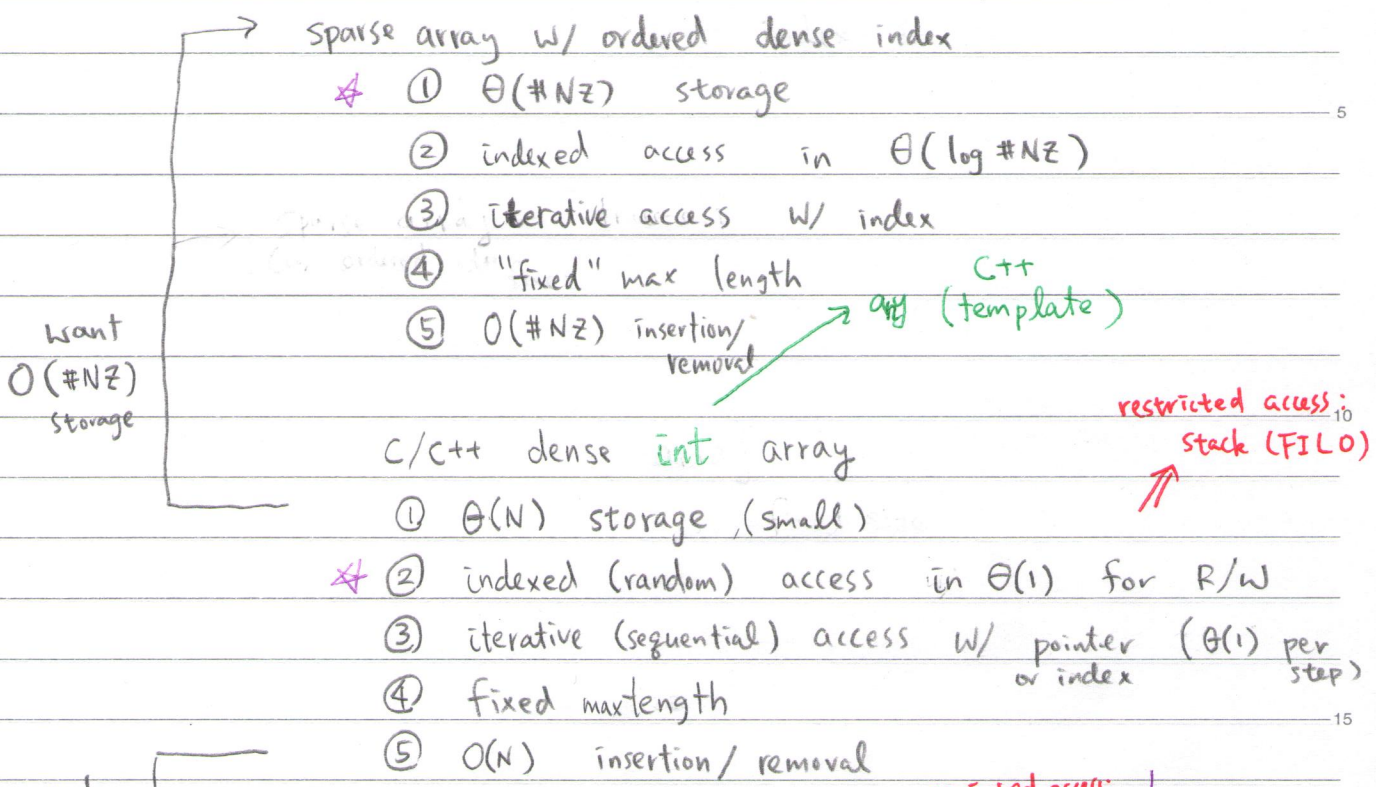 sparse array w/ ordered dense index
☆ ① Θ(#NZ) storage
5
② indexed access in Θ(log #NZ)
③ iterative access w/ index
④ "fixed" max length
⑤ O(#NZ) insertion/
removal
C++
any (template)
want
O(#NZ)
storage
restricted access:
10
stack (FILO)
C/C++ dense int array
① Θ(N) storage (small)
☆ ② indexed (random) access in Θ(1) for R/W
③ iterative (sequential) access w/ pointer (Θ(1) per
or index
step)
④ fixed max length
15
⑤ O(N) insertion / removal